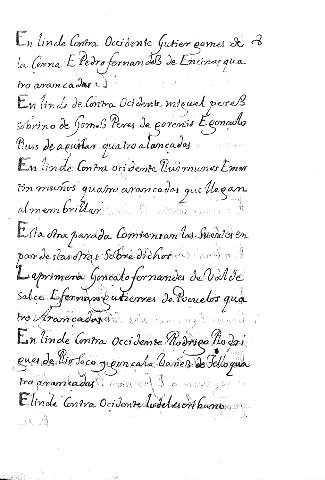 En linde Contra Occidente Gutier gomes de
la Corna E Pedro fernandes de Encinas qua
tro arancadas
En linde de Contra Ocidente miguel peres
sobrino de Gomes Peres de E gonçalo
Ruis de aguilar quatro arancadas
En linde Contra ocidente Rui munos E mar
tin muños quatro arancadas que llegan
al membrillar
Esta otra parada Comiensan las suertes en
par de las otras sobre dichos
La primera Gonçalo fernandes de Val de
Salce E fernan gutierres de Poçuelos qua
tro Arancadas
En linde Contra Occidente Rodrigo Rodri
gues de Rio Seco y gonçalo Yanes de Tello qua
tro arancadas
E linde Contra Ocidente lo del escribano